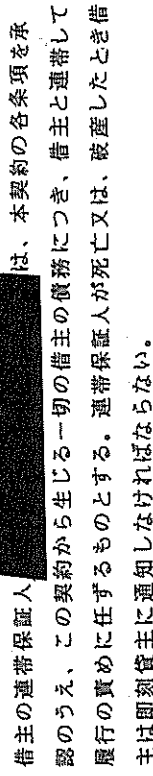 借主の連帯保証人は、本契約の各条項を承
認のうえ、この契約から生じる一切の借主の債務につき、借主と連帯して
履行の責めに任ずるものとする。連帯保証人が死亡又は、破産したとき借
主は即刻貸主に通知しなければならない。